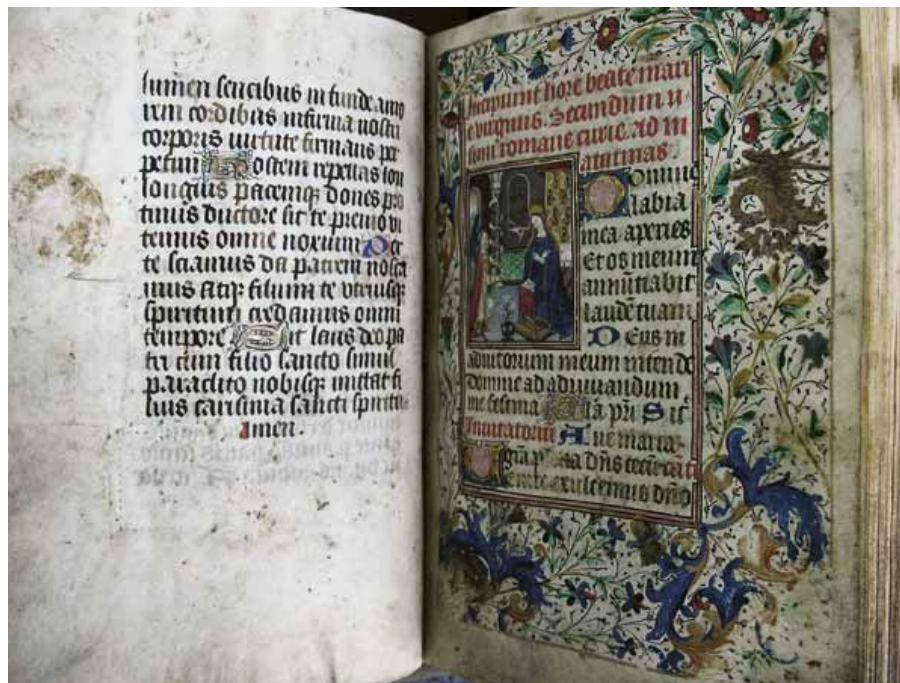 lumen sencibus in funde amo
rem cordibus infirma nostri
corporis uirtute firmans per
petim Hostem repellas lon
longius pacemq dones pro
tinus ductore sic te preuio vi
temus omne noxium Per
te sciamus da patrem nosca
mus atq filium te vtriusq
spiritum credamus omni
tempore Sit laus deo pa
tri cum filio sancto simul
paraclito nobisq mittat fi
lius carisma sancti spiritus
amen.
Incipiunt hore beate mari
e virginis. Secundum u
sum romane curie. ad m
atutinas.
Domine
labia
mea aperies
Et os meum
annuntiabit
laudē tuam
Deus in
adiutorium meum intende
domine ad adiuuandum
me festina Gła pri Sic
Inuitatoriū Aue maria
gra plena dns tecū
enite exultemus dño